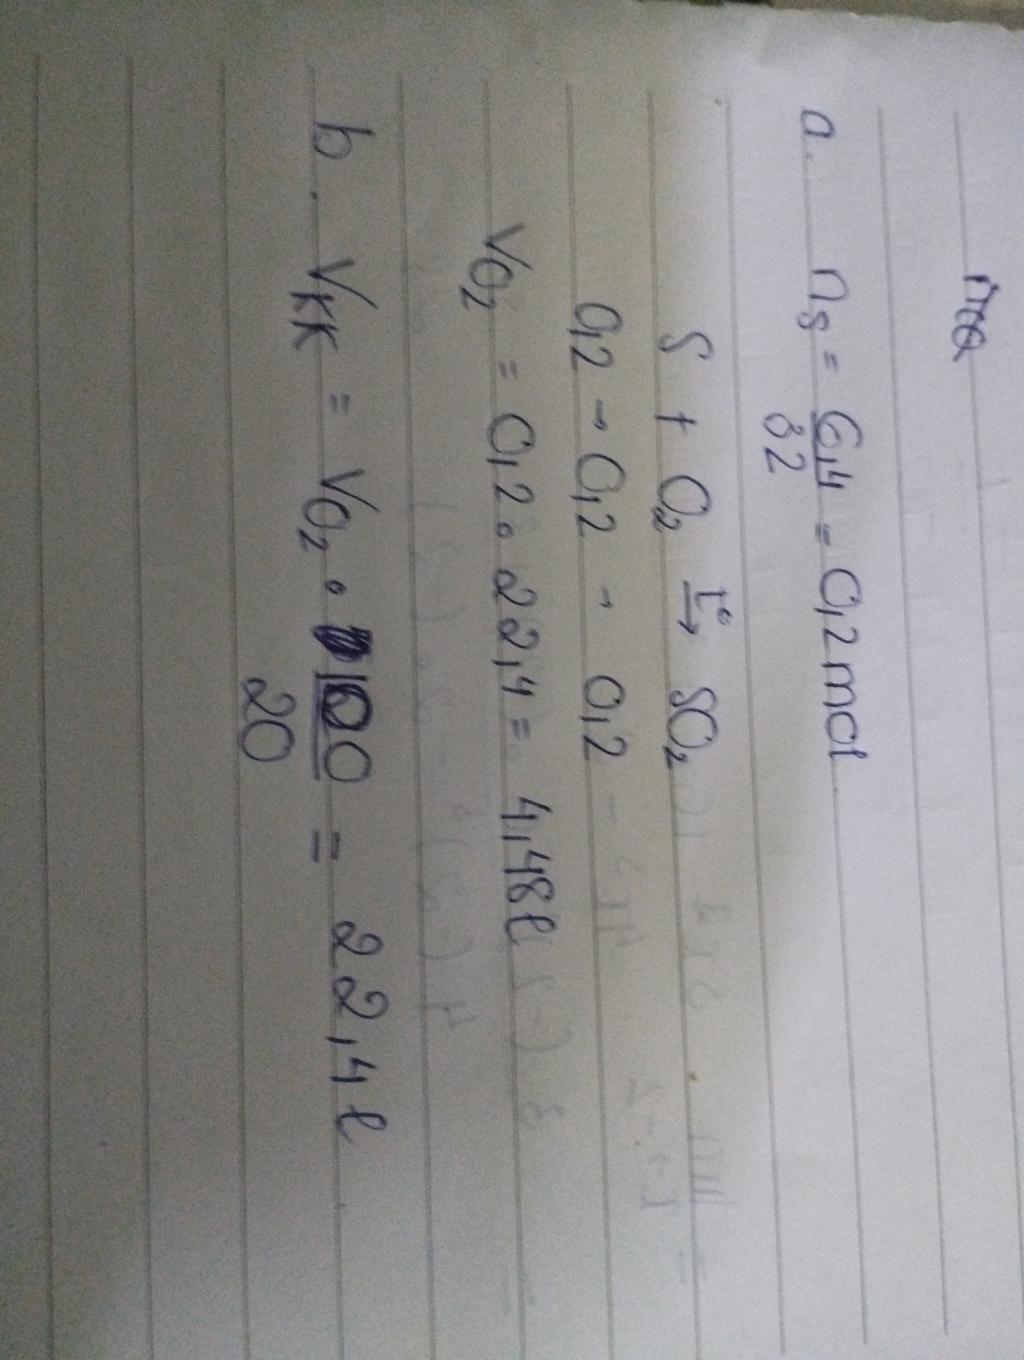 a. nS = 6,4/32 = 0,2 mol
S + O2 t°→ SO2
0,2 → 0,2 → 0,2
VO2 = 0,2 . 22,4 = 4,48 l
b. VKK = VO2 . 100/20 = 22,4 l